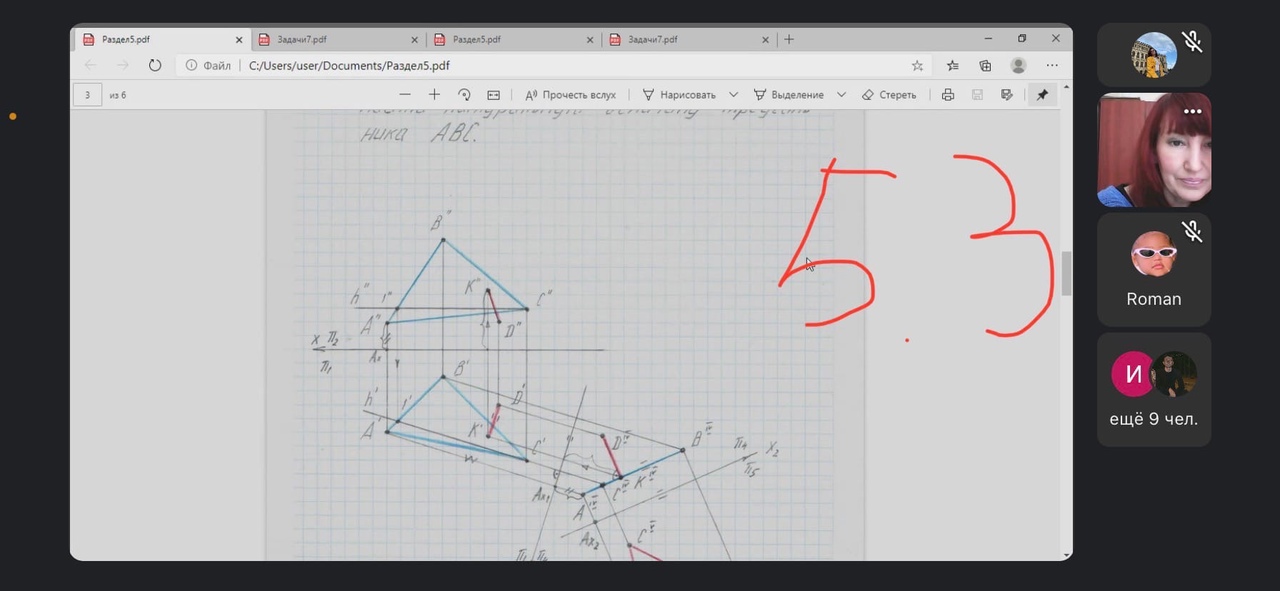 Раздел5.pdf
Задачи7.pdf
Раздел5.pdf
Задачи7.pdf
Файл
C:/Users/user/Documents/Раздел5.pdf
3
из 6
Прочесть вслух
Нарисовать
Выделение
Стереть
ника ABC.
5.3
B"
h"
1"
K"
C"
A"
D"
X
π2
π1
Ax
B'
h'
1'
D'
A'
K'
C'
D^IV
B^IV
π4
X2
π5
K^IV
C^IV
Ax1
A^IV
Ax2
C^V
π1
π4
Roman
И
ещё 9 чел.